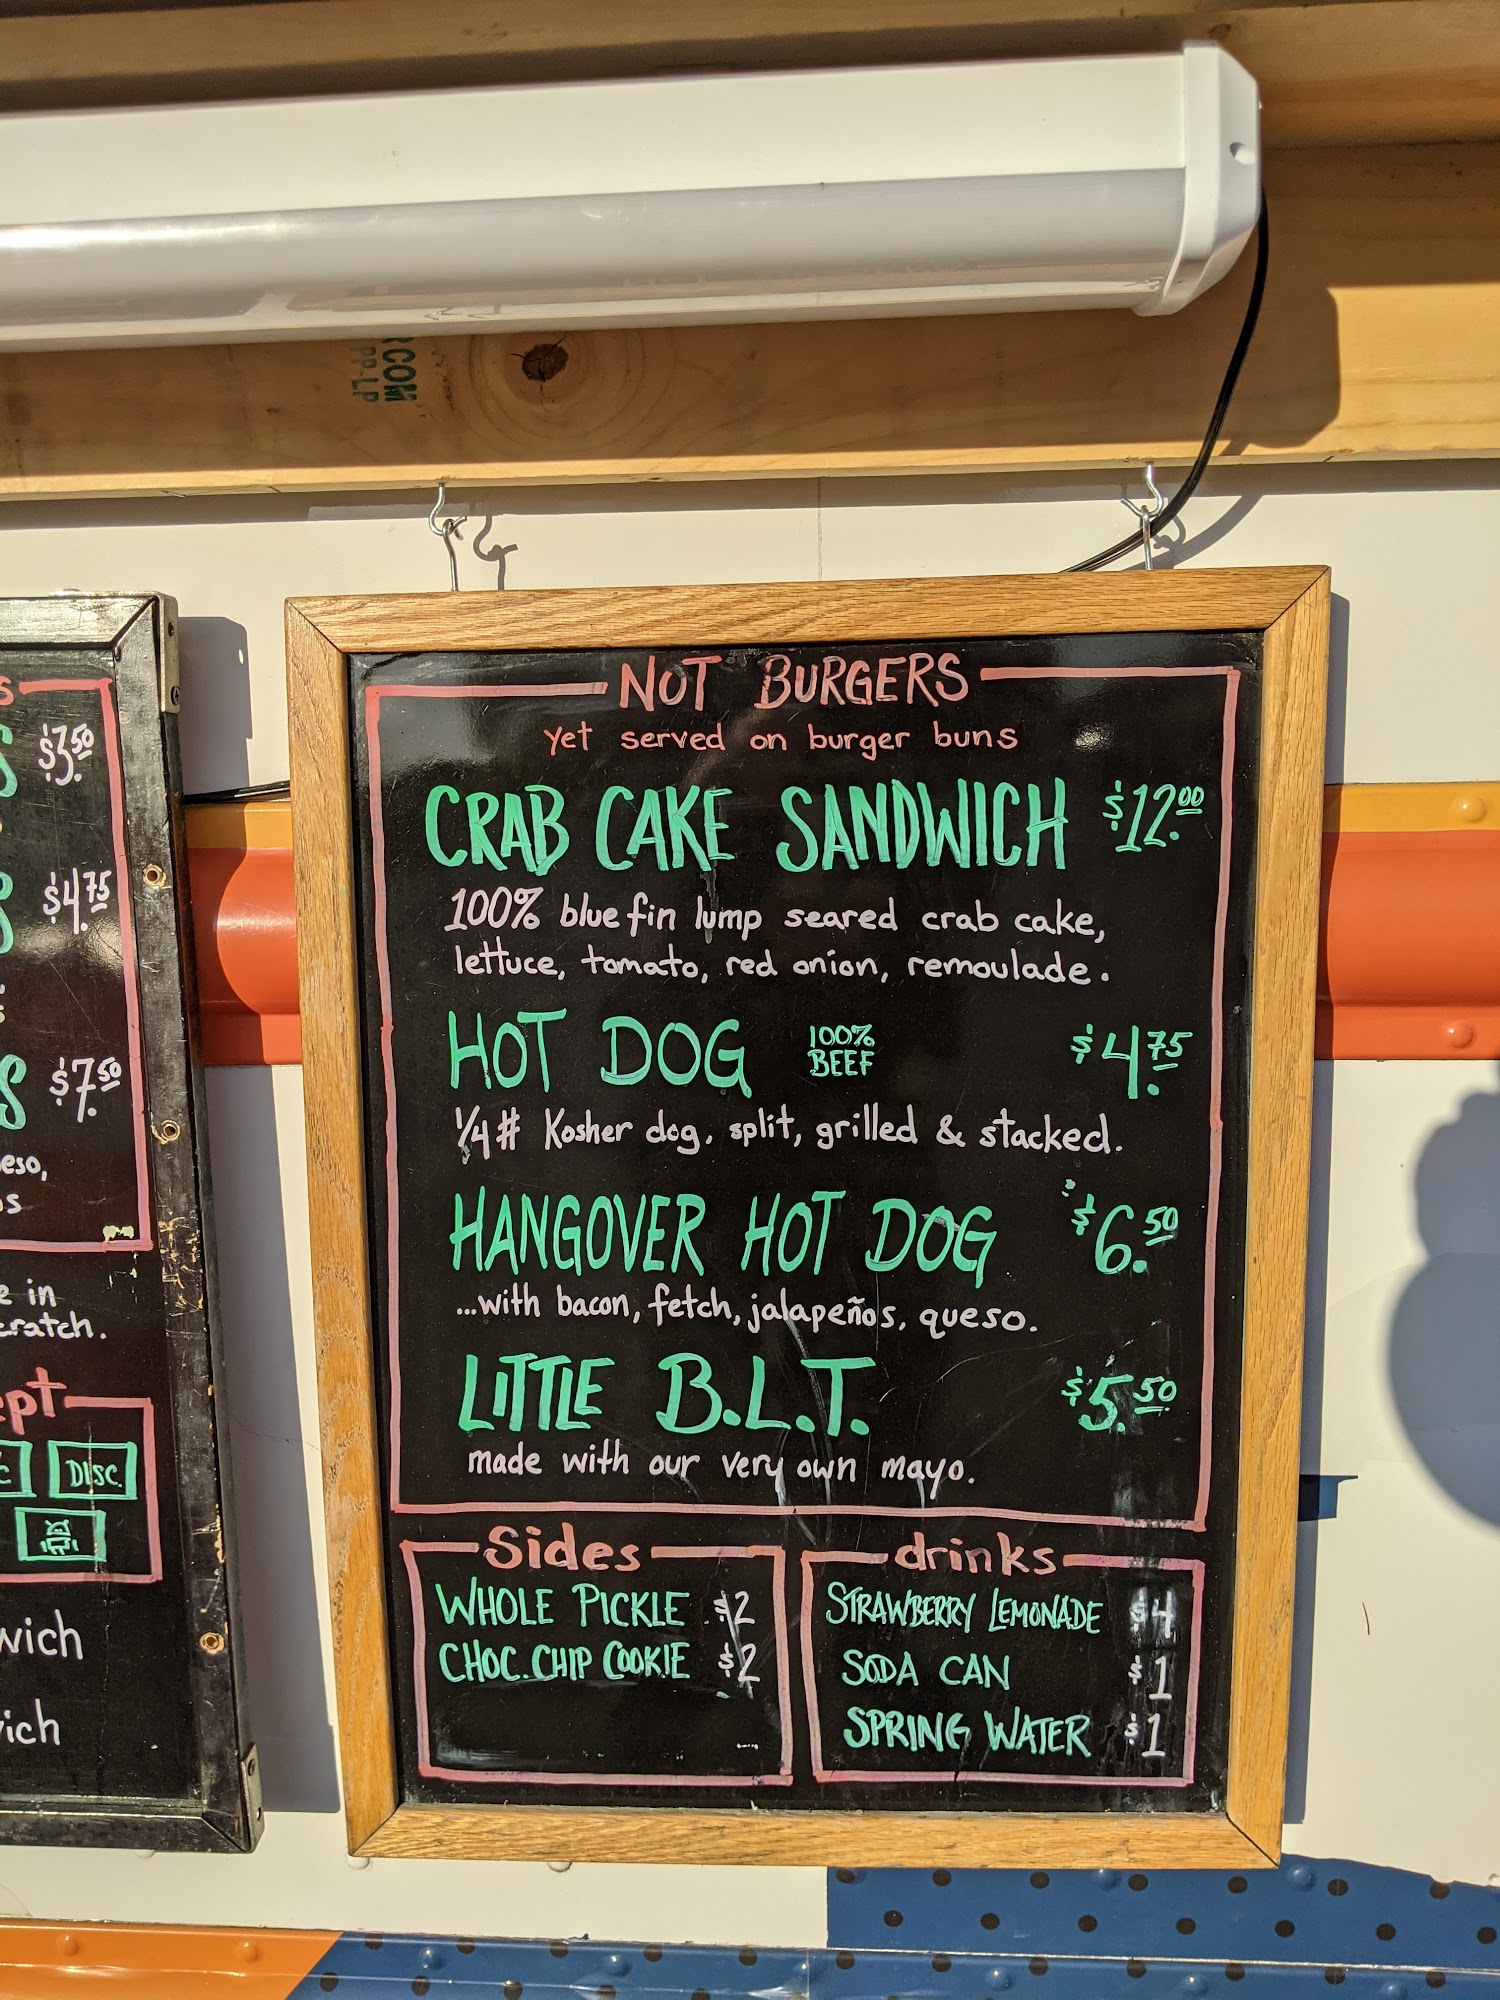 RCON
PP-LP
$3.50
$4.75
$7.50
eso,
s
e in
cratch.
ept
C DISC.
wich
ich
NOT BURGERS
yet served on burger buns
CRAB CAKE SANDWICH $12.00
100% blue fin lump seared crab cake,
lettuce, tomato, red onion, remoulade.
HOT DOG 100% BEEF $4.75
1/4# Kosher dog, split, grilled & stacked.
HANGOVER HOT DOG $6.50
...with bacon, fetch, jalapeños, queso.
LITTLE B.L.T. $5.50
made with our very own mayo.
Sides
WHOLE PICKLE $2
CHOC. CHIP COOKIE $2
drinks
STRAWBERRY LEMONADE $4
SODA CAN $1
SPRING WATER $1